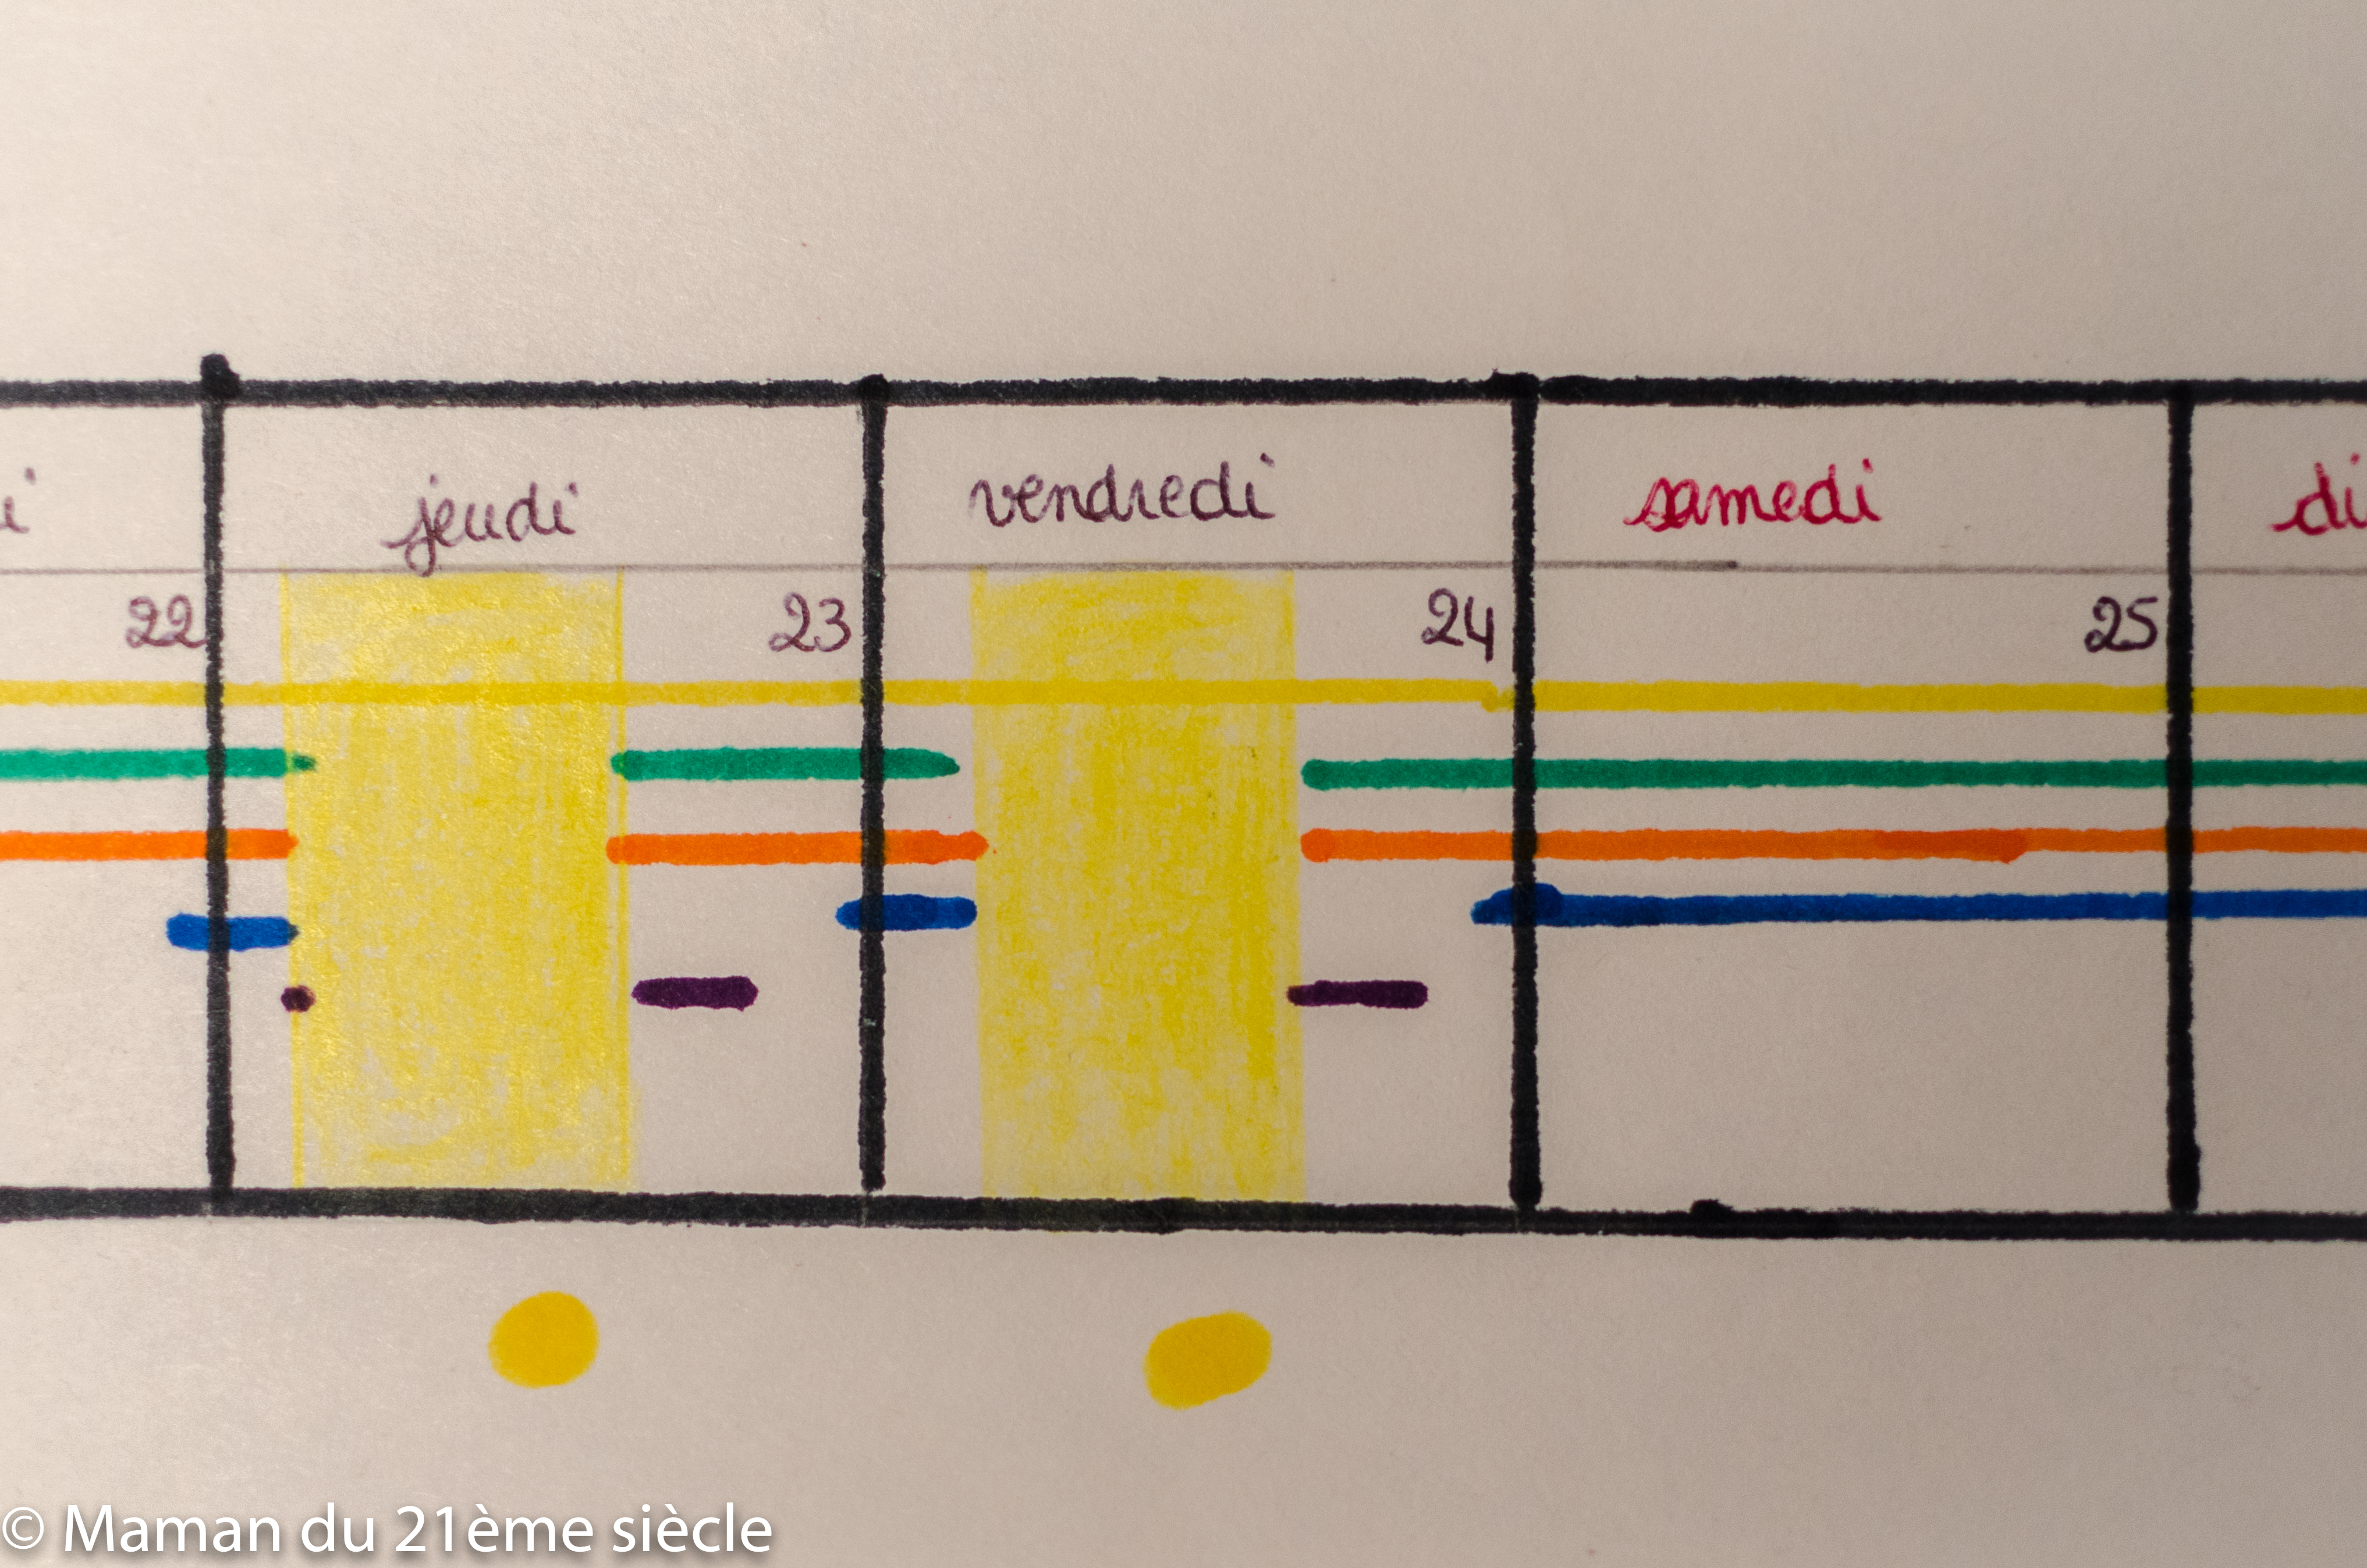 jeudi vendredi samedi
22 23 24 25
© Maman du 21ème siècle